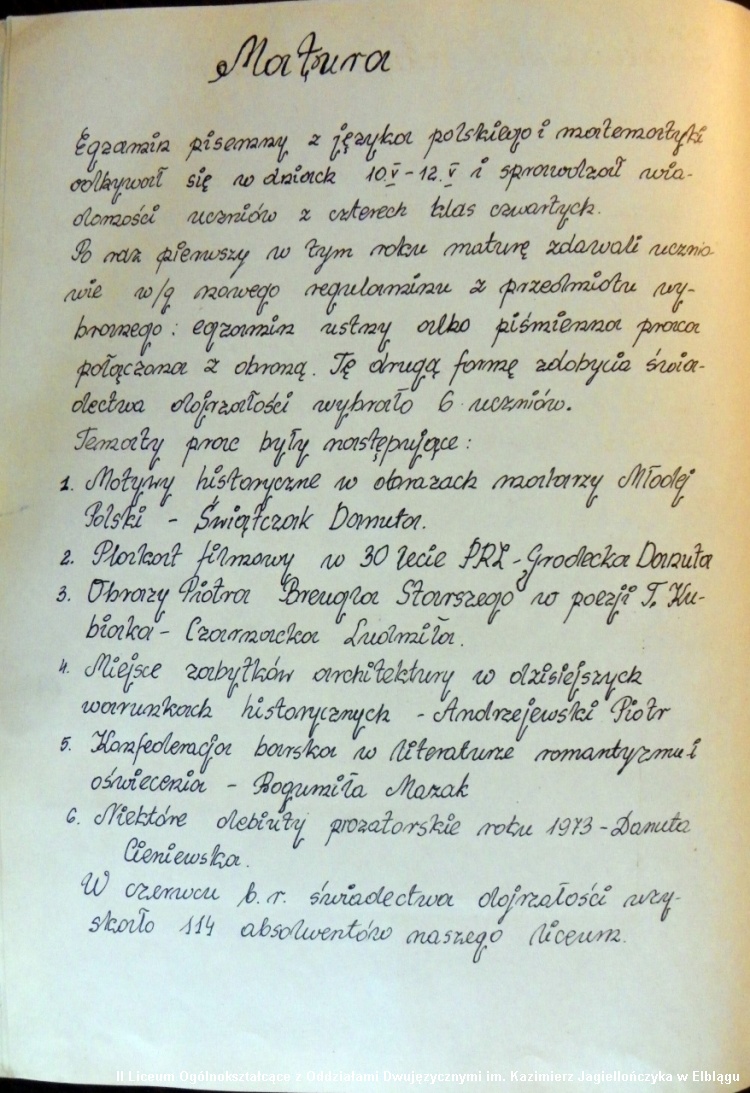 Matura
Egzamin pisemny z języka polskiego i matematyki
odbywał się w dniach 10.V - 12.V i sprawdzał wia-
domości uczniów z czterech klas czwartych.
Po raz pierwszy w tym roku maturę zdawali ucznio
wie w/g nowego regulaminu z przedmiotu wy-
branego: egzamin ustny albo piśmienna praca
połączona z obroną. Tę drugą formę zdobycia świa-
dectwa dojrzałości wybrało 6 uczniów.
Tematy prac były następujące:
1. Motywy historyczne w obrazach malarzy Młodej
Polski - Świątczak Danuta.
2. Plakat filmowy w 30 lecie PRL - Grodecka Danuta
3. Obrazy Piotra Breugla Starszego w poezji T. Ku-
biaka - Czarnacka Ludmiła.
4. Miejsce zabytków architektury w dzisiejszych
warunkach historycznych - Andrzejewski Piotr
5. Konfederacja barska w literaturze romantyzmu i
oświecenia - Bogumiła Mazak
6. Niektóre debiuty prozatorskie roku 1973 - Danuta
Cieniewska.
W czerwcu b.r. świadectwa dojrzałości uzy-
skało 114 absolwentów naszego liceum.
II Liceum Ogólnokształcące z Oddziałami Dwujęzycznymi im. Kazimierz Jagiellończyka w Elblągu